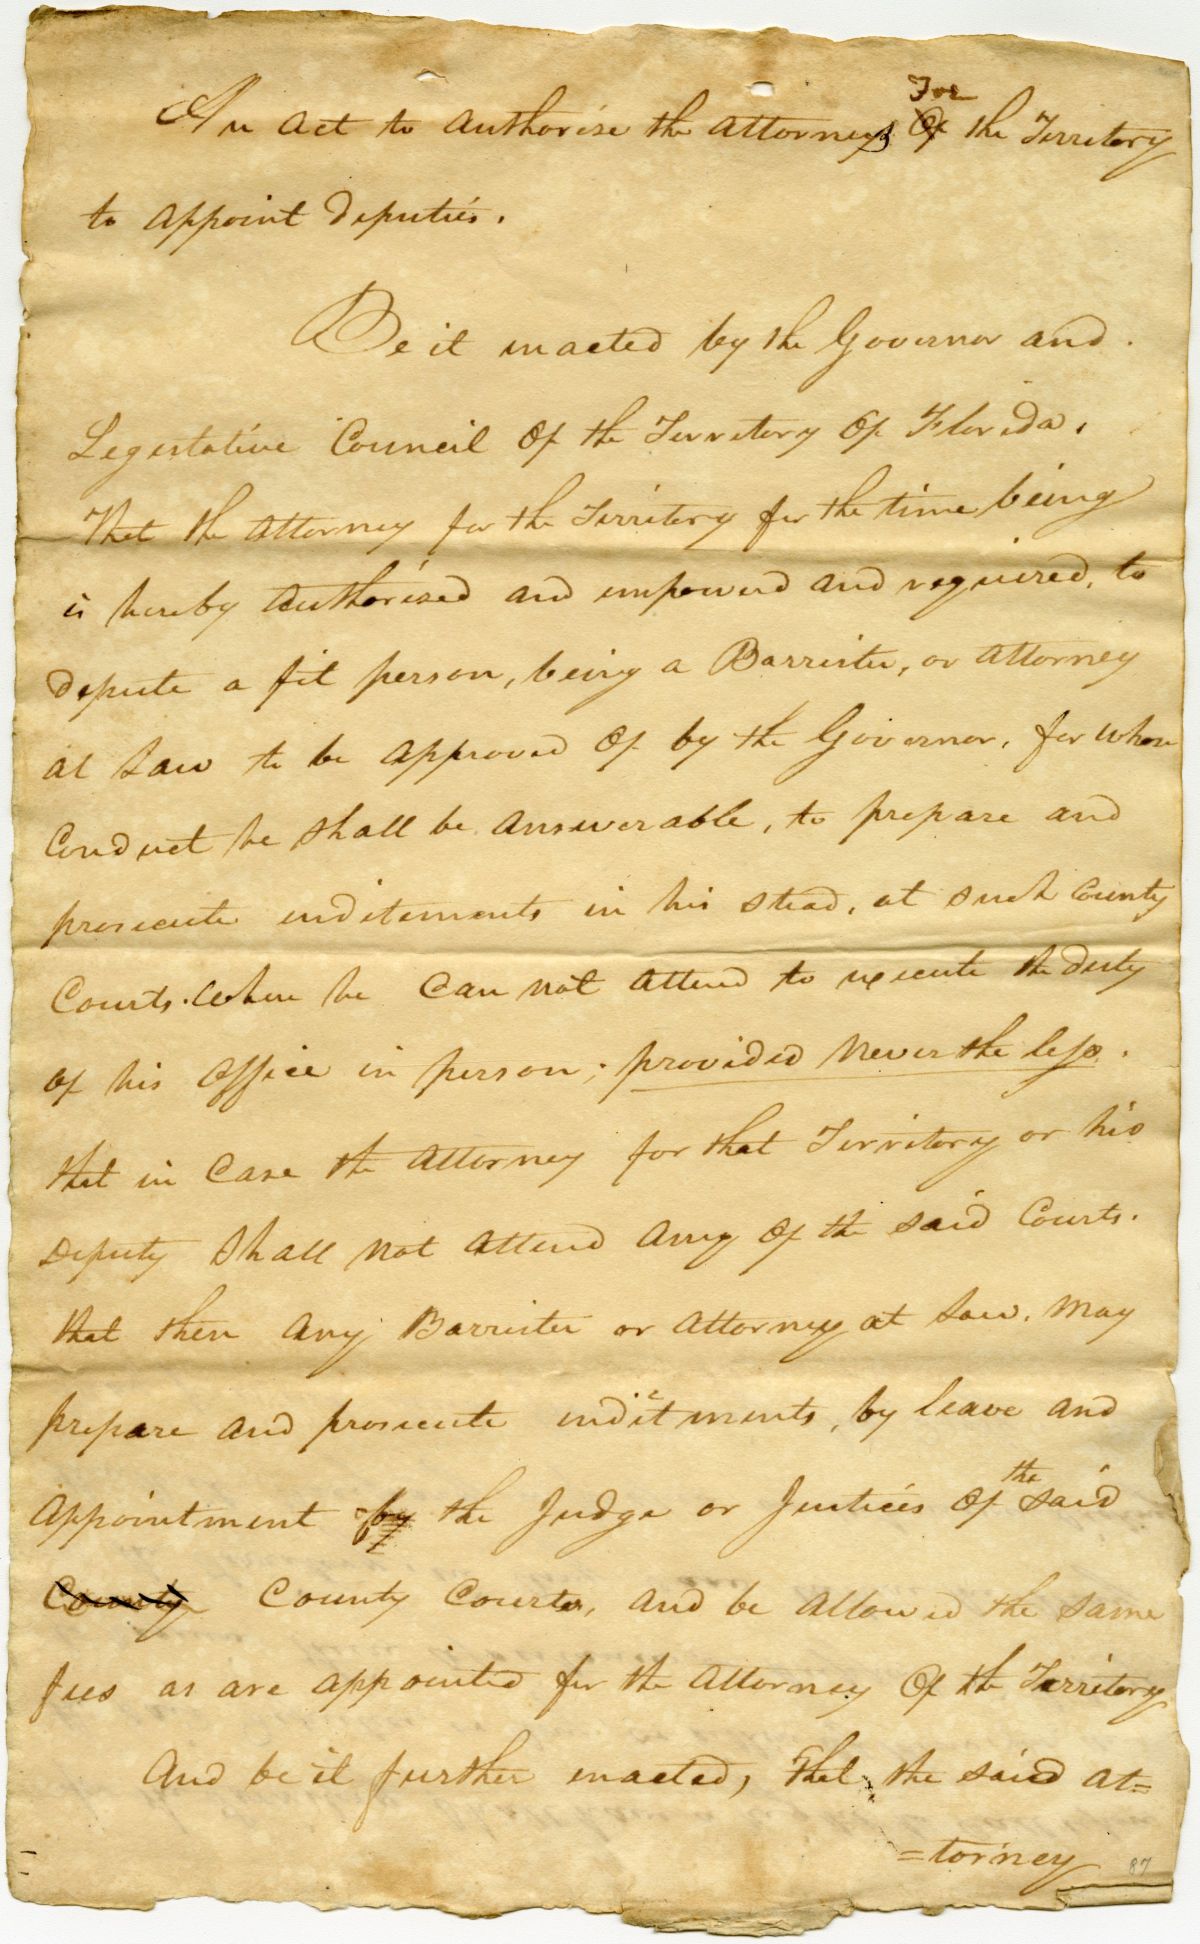 An act to authorise the attorneys For Of the Territory
to appoint deputies.
Be it enacted by the Governor and
Legestative Council Of the Territory Of Florida.
That the attorney for the Territory for the time being
is hereby authorised and empowerd and required, to
depute a fit person, being a Barrister, or attorney
at Law to be approved Of by the Governor, for whose
Conduct he shall be answerable, to prepare and
prosecute inditements in his stead, at such County
Courts. Where he Can not attend to execute the duty
of his Office in person; provided Never the less.
that in Case the attorney for that Territory or his
Deputy Shall Not attend any Of the said Courts.
that then any Barrister or attorney at Law. May
prepare and prosecute inditments, by leave and
appointment by the Judge or Justices Of the said
County County Courts, and be allowed the same
fees as are appointed for the attorney Of the Territory
And be it further enacted, That the said at=
=torney
87